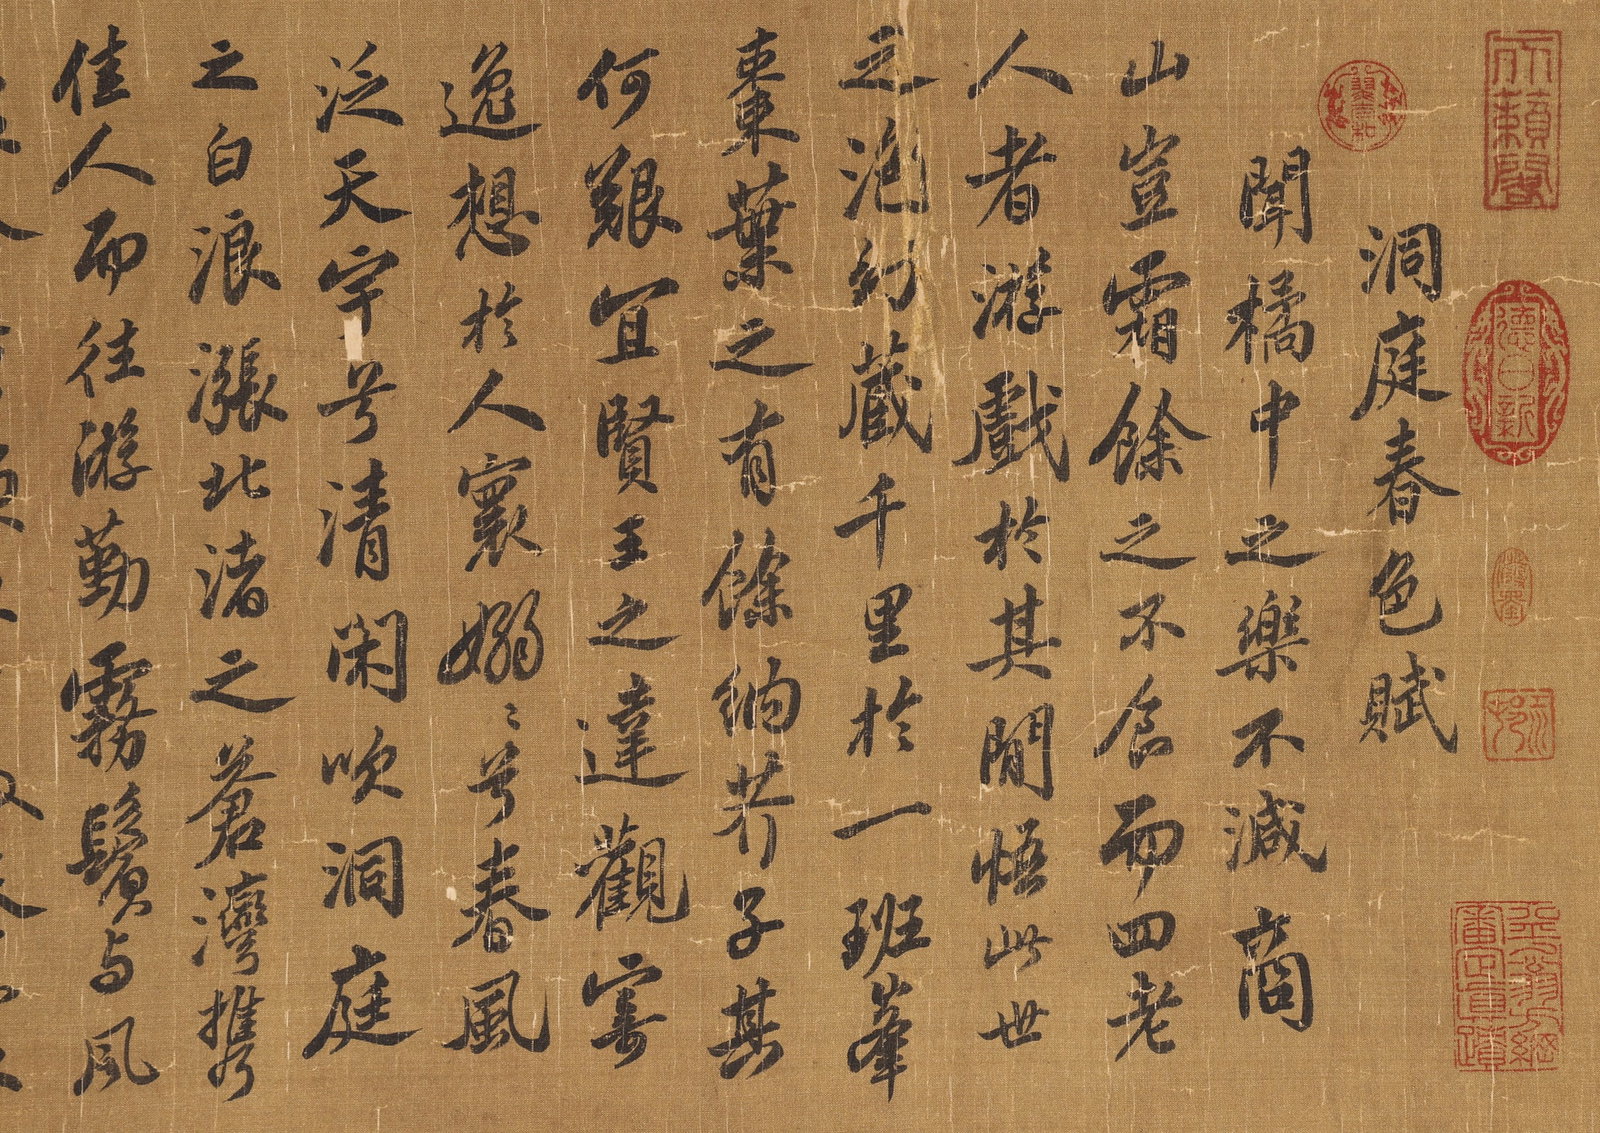 天籟閣
德日新
洞庭春色賦
聞橘中之樂不減商
山豈霜餘之不食而四老
人者游戲於其閒悟此世
之泡幻藏千里於一班峯
棗葉之有餘納芥子其
何艱宜賢王之達觀寄
逸想於人寰嫋〻兮春風
泛天宇兮清閑吹洞庭
之白浪漲北渚之蒼灣携
佳人而往游勤霧鬢与風